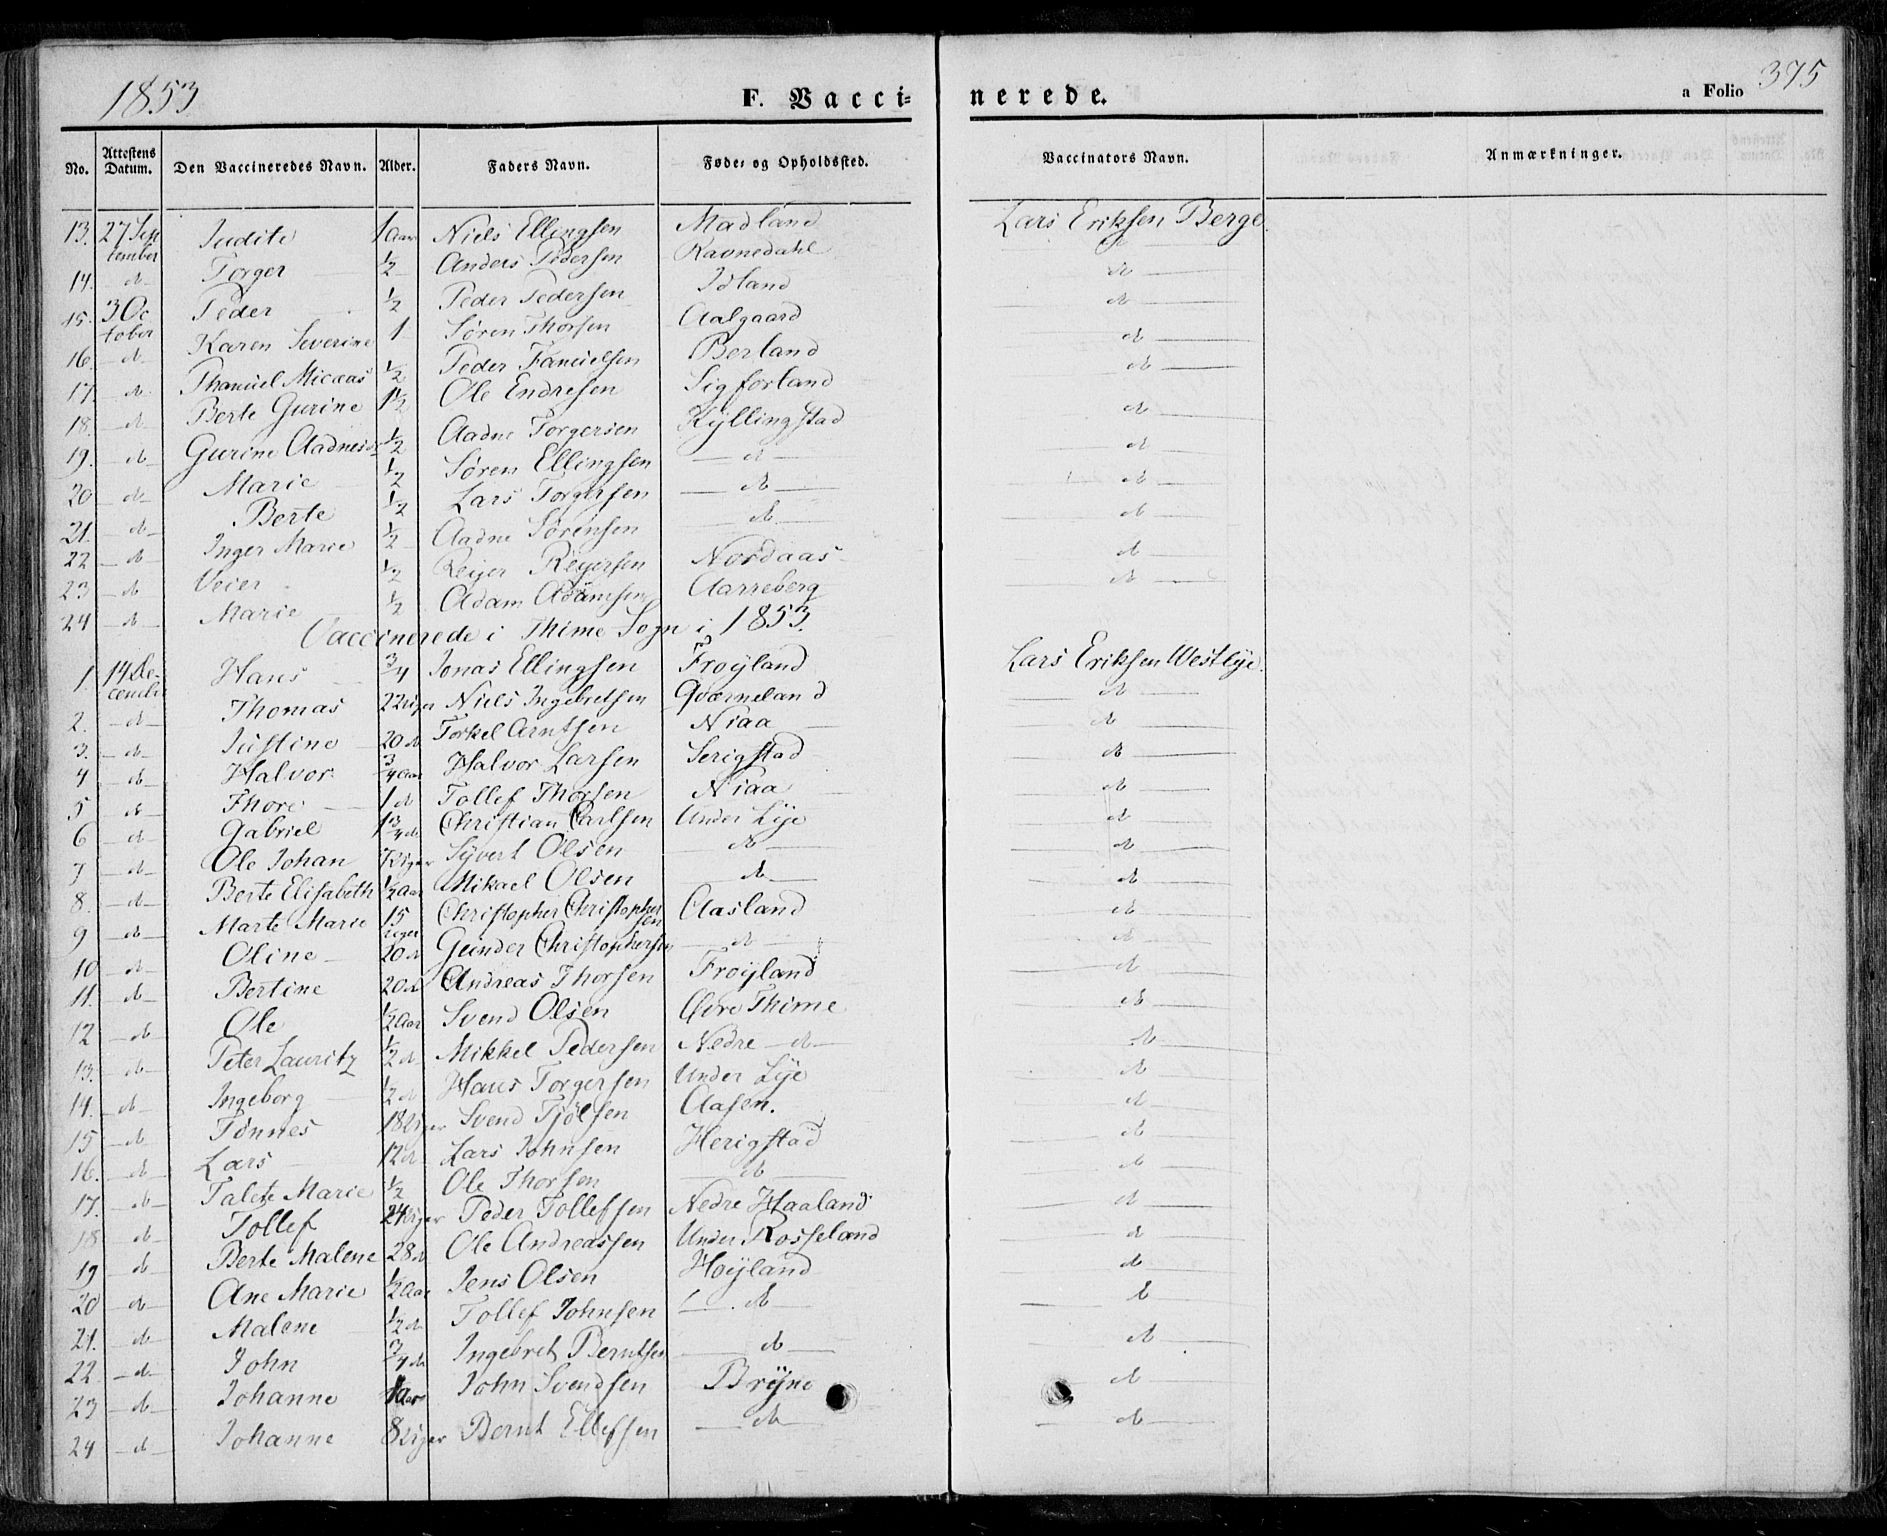 1853
F. Vacci=
nerede.
a Folio 375
No. Attestens Datum. Den Vaccineredes Navn. Alder. Faders Navn. Føde= og Opholdssted. Vaccinators Navn. Anmærkninger.
13. 27 Sep tember Judite 1 Aar Niels Ellingsen Madland Lars Eriksen Berge.
14. do Torger ½ Anders Pedersen Ravnedahl do
15. 3 Oc tober Peder ½ Peder Pedersen Idland do
16. do Karen Severine 1 Søren Thorsen Aalgaard do
17. do Thamuel Micæas ½ Peder Samuelsen Berland do
18. do Berte Gurine 1½ Ole Endresen Sigforland do
19. do Gurine Aadnesdr ½ Aadne Torgersen Kyllingstad do
20 do Marie ½ Søren Ellingsen do do
21. do Berte ½ Lars Torgersen do do
22 do Inger Marie ½ Aadne Sørensen do do
23 do Veier ½ Reijer Reijersen Nordaas do
24 do Marie ½ Adam Adamsen Aarreberg
Vaccinerede i Thime Sogn i 1853.
1. 14 De- cembr Hans ¾ Jonas Ellingsen Frøyland Lars Eriksen Westlye.
2. do Thomas 22 Uger Niels Ingebretsen Qværneland do
3. do Justine 20 do Torkel Arntsen Niaa do
4 do Halvor ¾ Aar Halvor Larsen Serigstad do
5 do Thore 1 do Tollef Thorsen Niaa do
6 do Gabriel 1¾ do Christian Carlsen Under Lye do
7 do Ole Johan 7 Uger Syvert Olsen do do
8. do Berte Elisabeth ½ Aar Mikael Olsen do do
9 do Marte Marie 15 Uger Christopher Christopher sen Aasland do
10 do Oline 20 do Gunder Christophersen do do
11. do Bertine 20 do Andreas Thorsen Frøyland do
12 do Ole ½ Aar Svend Olsen Øvre Thime do
13. do Peter Lauritz ½ do Mikkel Pedersen Nedre do do
14. do Ingeborg ½ do Hans Torgersen Under Lye do
15 do Tønnes 18 Uger Svend Tjølsen Aasen. do
16. do Lars 12 do Lars Johnsen Herigstad do
17. do Talete Marie ½ Ole Thorsen do do
18 do Tollef 24 Uger Peder Tollefsen Nedre Haaland do
19 do Berte Malene 28 do Ole Andreassen Under Rosseland do
20 do Ane Marie ½ Aar Jens Olsen Høyland do
21. do Malene ½ do Tollef Johnsen do do
22 do John ¾ do Ingebret Berntsen do do
23 do Johanne 1 Aar John Svendsen Bryne do
24 do Johanne 8 Uger Bernt Ellefsen do do